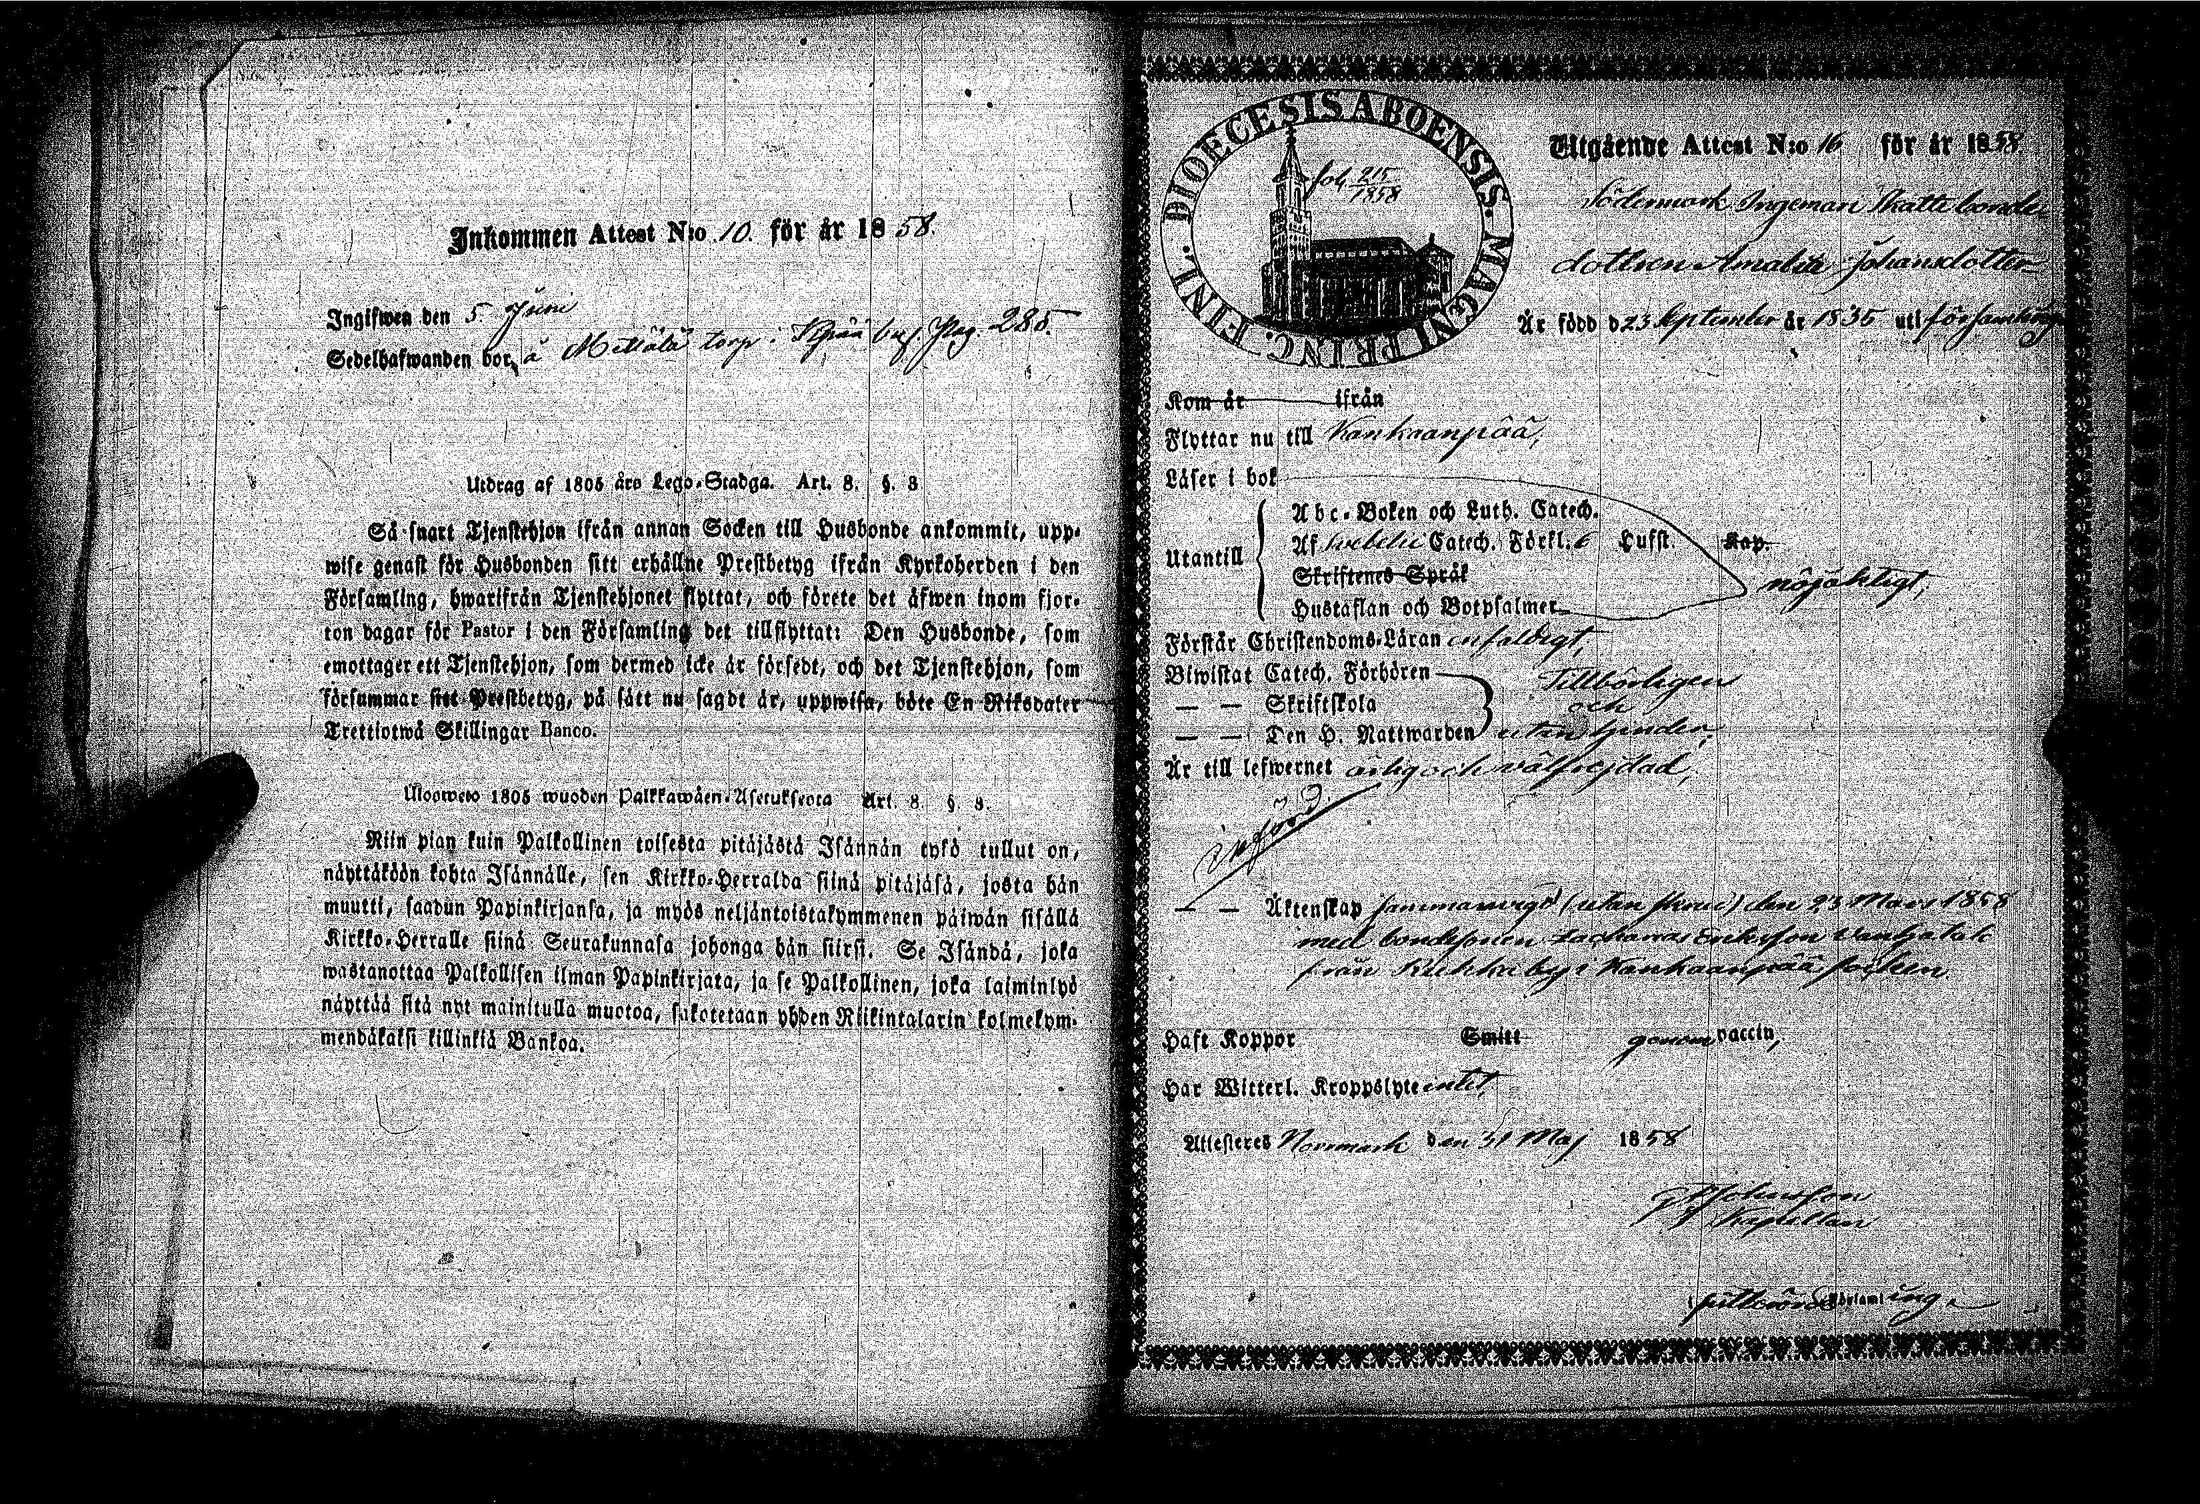 Inkommen Attest N:o 10. för år 1858.
Ingifwen den 5. Juni
Sedelhafwanden bor, å Mettälä torp i Kpää by. Pag. 285.
Utdrag af 1805 års Lego-Stadga. Art. 8. §. 3
Så snart Tjenstehjon ifrån annan Socken till Husbonde ankommit, upp-
wise genast för Husbonden sitt erhållne Prestbetyg ifrån Kyrkoherden i den
Församling, hwarifrån Tjenstehjonet flyttat, och förete det äfwen inom fjor-
ton dagar för Pastor i den Församling det tillflyttat: Den Husbonde, som
emottager ett Tjenstehjon, som dermed icke är försedt, och det Tjenstehjon, som
försummar sitt Prestbetyg, på sätt nu sagdt är, uppwisa, böte En Riksdaler
Trettiotwå Skillingar Banco.
Ulosweto 1805 wuoden Palkkawäen-Asetuksesta Art. 8. §. 3.
Niin pian kuin Palkollinen toisesta pitäjästä Isännän tykö tullut on,
näyttäköön kohta Isännälle, sen Kirkko-Herralda siinä pitäjäsä, josta hän
muutti, saadun Papinkirjansa, ja myös neljäntoistakymmenen päiwän sisällä
Kirkko-Herralle siinä Seurakunnasa johonga hän siirsi. Se Isändä, joka
wastanottaa Palkollisen ilman Papinkirjata, ja se Palkollinen, joka laiminlyö
näyttää sitä nyt mainitulla muotoa, sakotetaan yhden Riikintalarin kolmekym-
mendäkaksi killinkiä Bankoa.
DIOECESIS ABOENSIS. MAGNI PRINC. FINL.
fol. 215/1858
Utgående Attest N:o 16 för år 1858.
Södermark Ingeman Skattebonde
dottren Amalia Johansdotter
Är född d 23 September år 1835 uti församlingen
Kom år ifrån
Flyttar nu till Kankaanpää,
Läser i bok
Utantill
Abc-Boken och Luth. Catech.
Af Svebelii Catech. Förkl. 6 Hufst. Kap.
Skriftenes Språk
Hustaflan och Botpsalmer
nöjaktigt,
Förstår Christendoms-Läran enfaldigt,
Biwistat Catech. Förhören
— — Skriftskola
— — Den H. Nattwarden
Tillbörligen
och
utan hinder,
Är till lefwernet ärlig och välfrejdad,
Införd.
— — Äktenskap sammanvigd (utan  ) den 23 Mars 1858
med bondesonen Zacharias Eriksson
från  by i Kankaanpää socken
Haft Koppor Smitt genom vaccin,
Har Witterl. Kroppslyte intet,
Attesteres Norrmark den 31 Maj 1858
Johnsson
Kapellan
i församling.